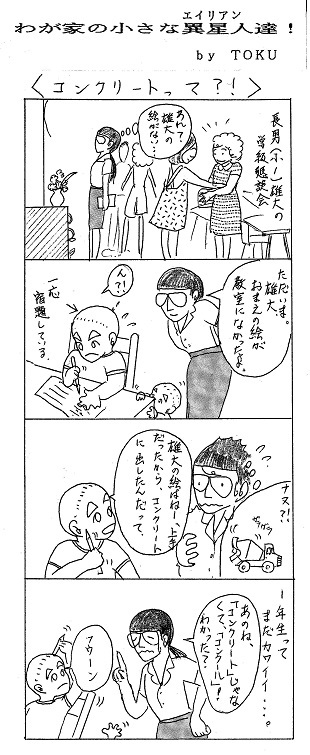 エイリアン
わが家の小さな異星人達！
by TOKU
〈コンクリートって?!〉
長男(小一)雄大の
学級懇談会
あれ?
雄大の
絵がない…
ただいま。
雄大、
おまえの絵が
教室になかったよ。
ん?!
一応
宿題している。
雄大の絵はねー、上手
だったから、コンクリート
に出したんだって。
ナヌ?!
1年生って
まだカワイイ…。
あのね、
「コンクリート」じゃな
くて、「コンクール」!
わかった?
フウーン